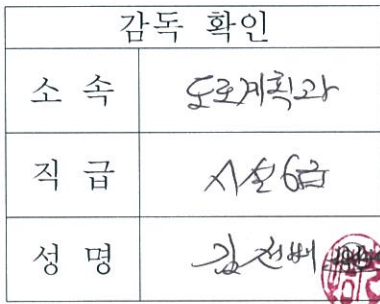 감독 확인
소 속 도로계획과
직 급 시설6급
성 명 김